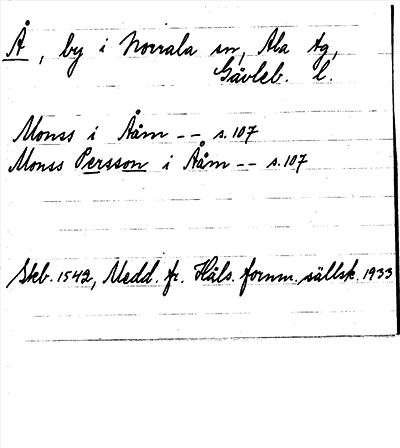 Å, by i Norrala sn, Ala tg,
Gävleb. l.
Monss i Ååm -- s. 107
Monss Persson i Ååm -- s. 107
Skb. 1542, Medd. fr. Häls. fornm. sällsk. 1933